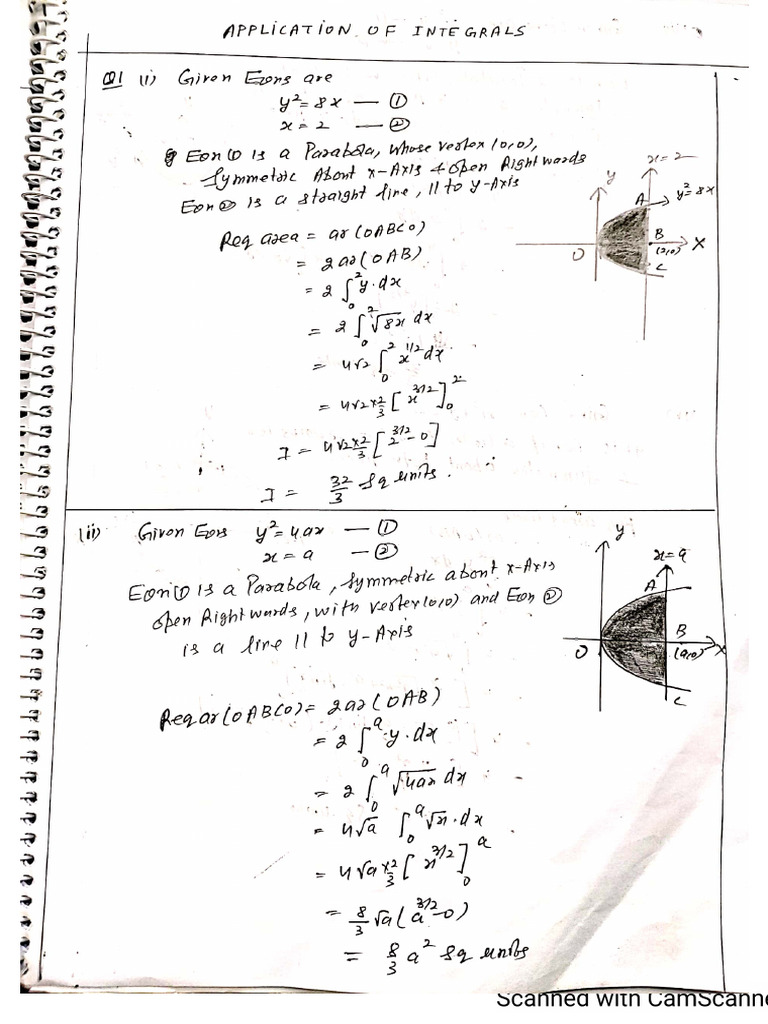 APPLICATION OF INTEGRALS
Q1 (i) Given Eqns are
y² = 8x — ①
x = 2 — ②
Eqn ① is a Parabola, whose vertex (0,0),
Symmetric About x-Axis & open Rightwards
Eqn ② is a straight line, || to y-Axis
x=2
y
A
y²=8x
B
(2,0)
X
O
C
Req area = ar(OABCO)
= 2ar(OAB)
= 2 ∫₀² y·dx
= 2 ∫₀² √8x dx
= 4√2 ∫₀² x^1/2 dx
= 4√2 × 2/3 [x^3/2]₀²
I = 4√2 × 2/3 [2^3/2 - 0]
I = 32/3 Sq units.
(ii) Given Eqns y² = 4ax — ①
x = a — ②
Eqn ① is a Parabola, Symmetric about x-Axis
open Rightwards, with vertex (0,0) and Eqn ②
is a line || to y-Axis
y
x=a
A
B
(a,0)
X
O
C
Req ar(OABCO) = 2ar(OAB)
= 2 ∫₀ᵃ y·dx
= 2 ∫₀ᵃ √4ax dx
= 4√a ∫₀ᵃ √x·dx
= 4√a × 2/3 [x^3/2]₀ᵃ
= 8/3 √a (a^3/2 - 0)
= 8/3 a² Sq units
Scanned with CamScanne